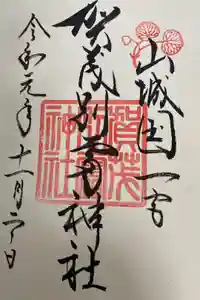 山城国一宮
賀茂別雷神社
令和元年十一月六日
賀茂
別雷
神社